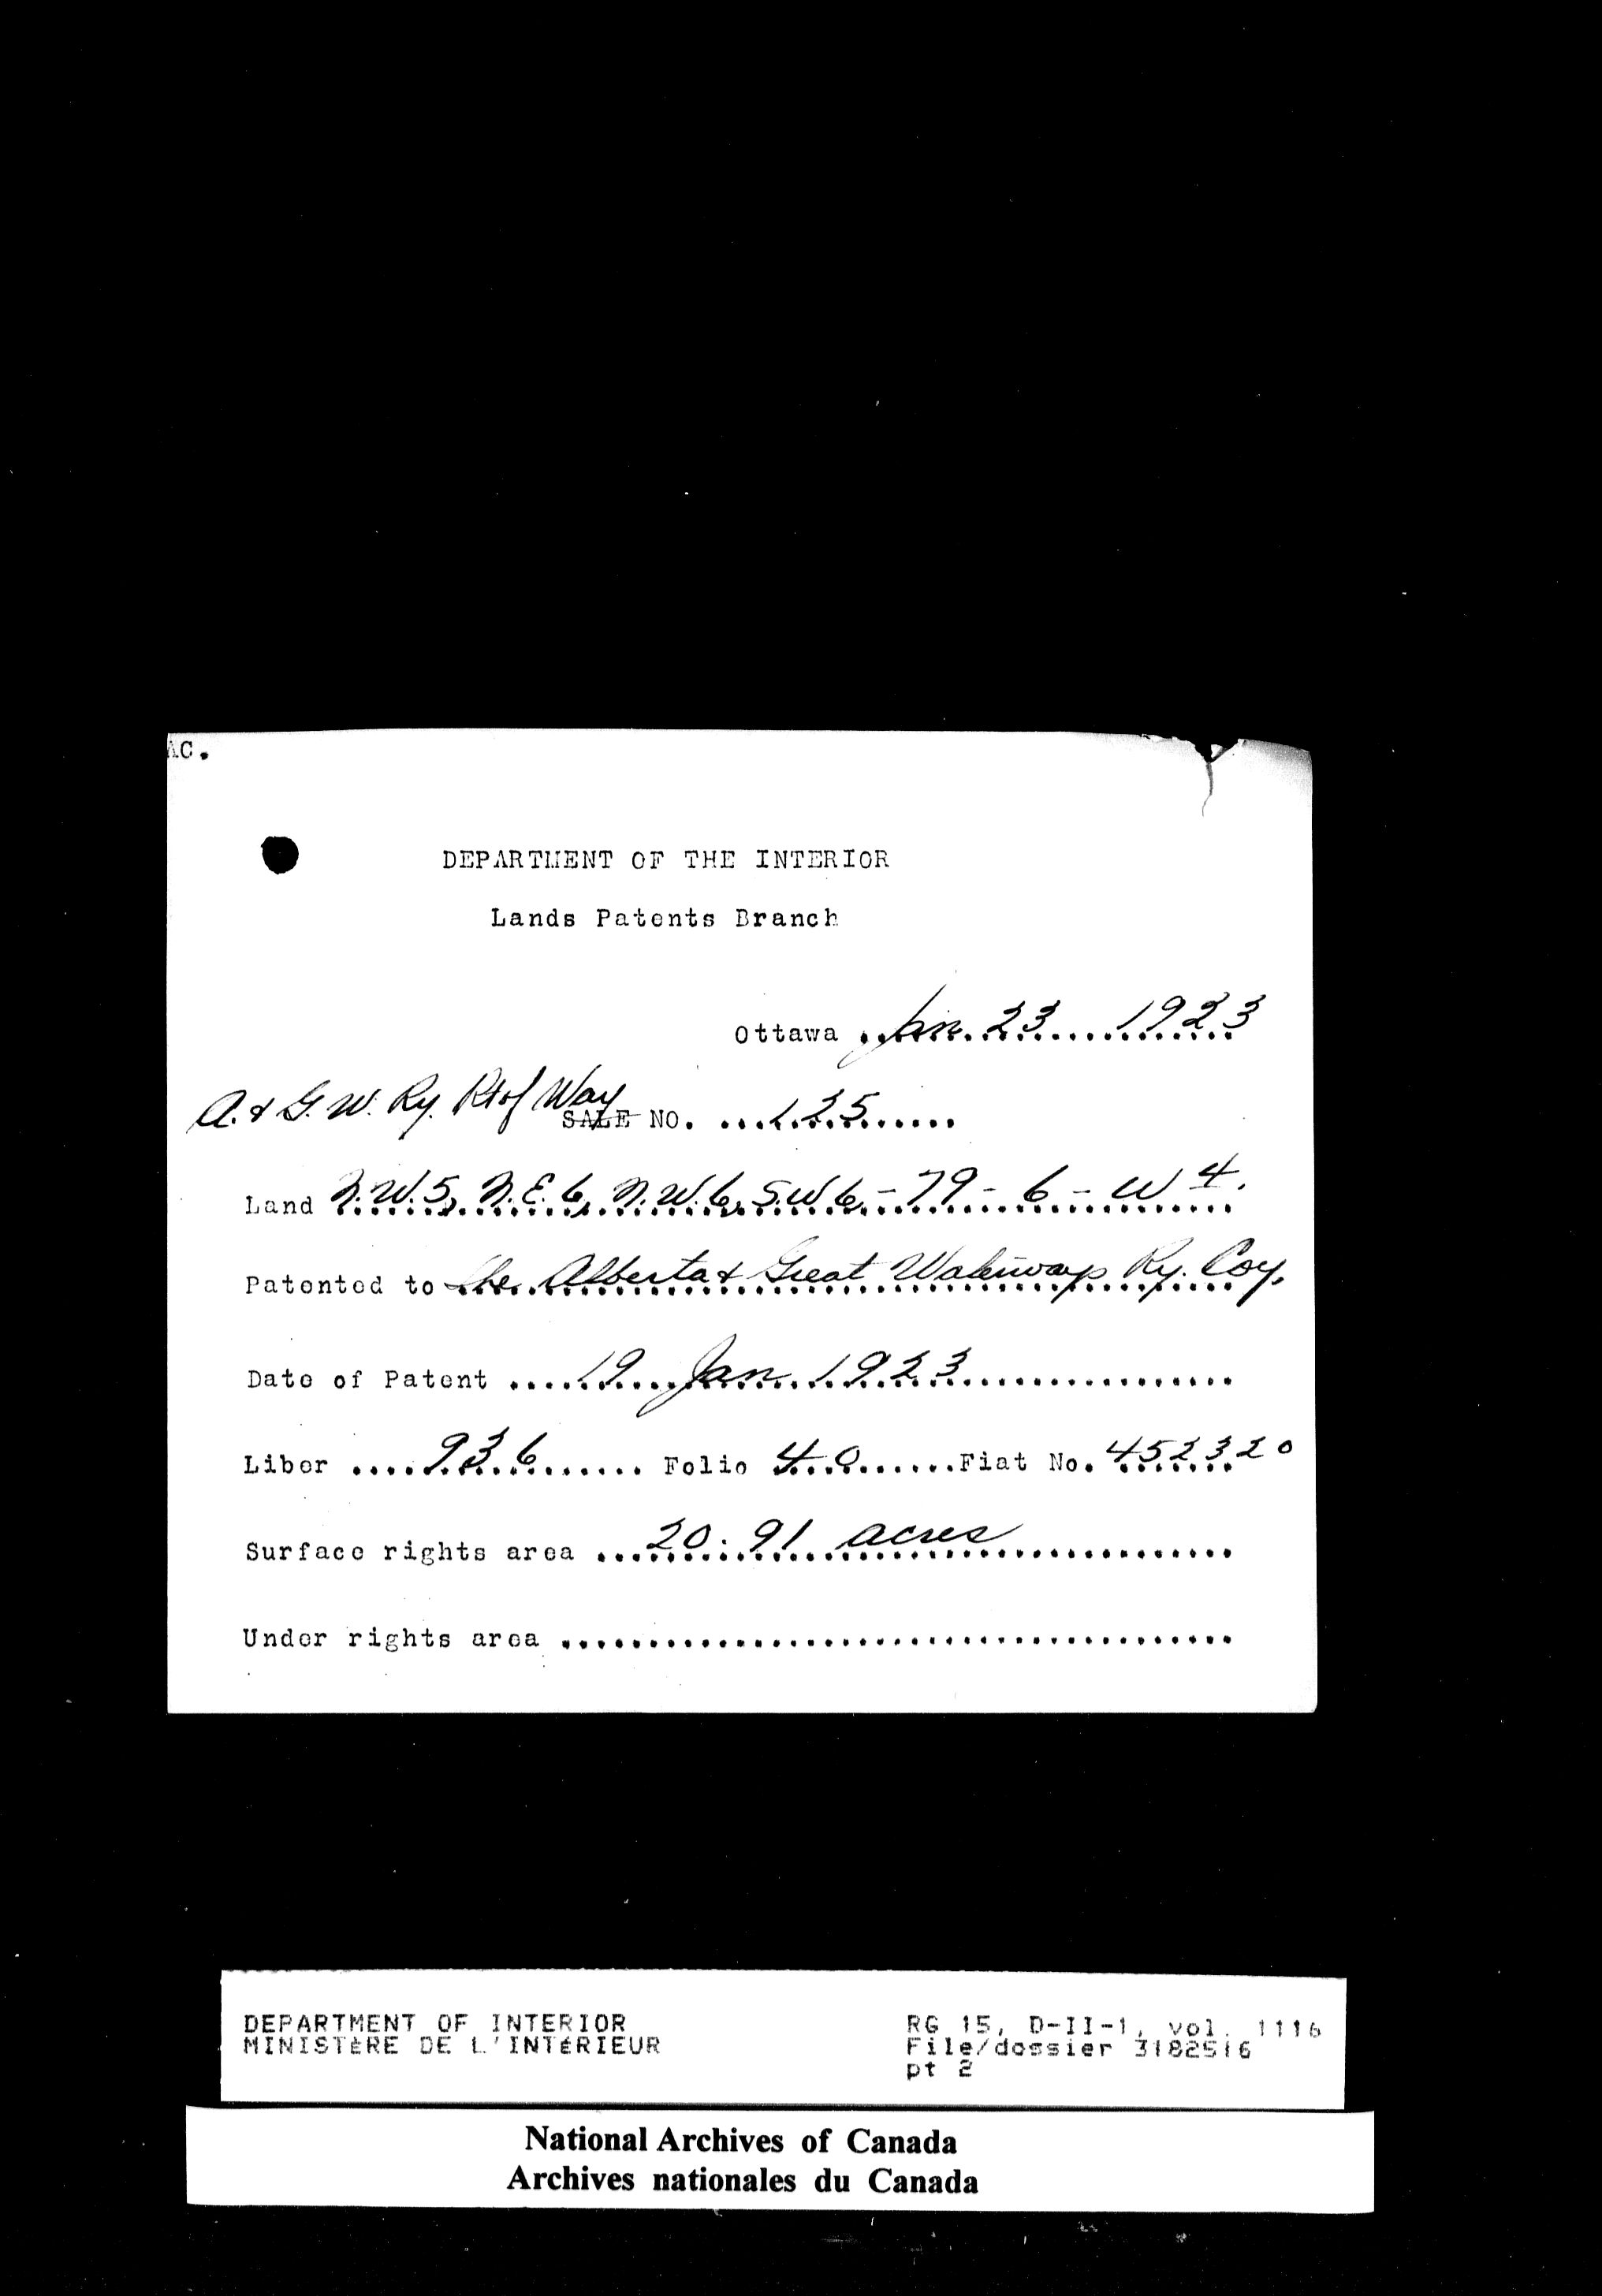 AC.
DEPARTMENT OF THE INTERIOR
Lands Patents Branch
Ottawa Jan. 23 1923
A. & G. W. Ry. Rt of Way SALE NO. 125
Land N.W.5, N.E.6, N.W.6, S.W6, - 79 - 6 - W 4.
Patented to The Alberta & Great Waterways Ry. Coy,
Date of Patent 19 Jan 1923
Liber 936 Folio 40 Fiat No. 452320
Surface rights area 20.91 acres
Under rights area
DEPARTMENT OF INTERIOR RG 15, D-II-1, vol. 1116
MINISTÈRE DE L'INTÉRIEUR File/dossier 3182516
pt 2
National Archives of Canada
Archives nationales du Canada